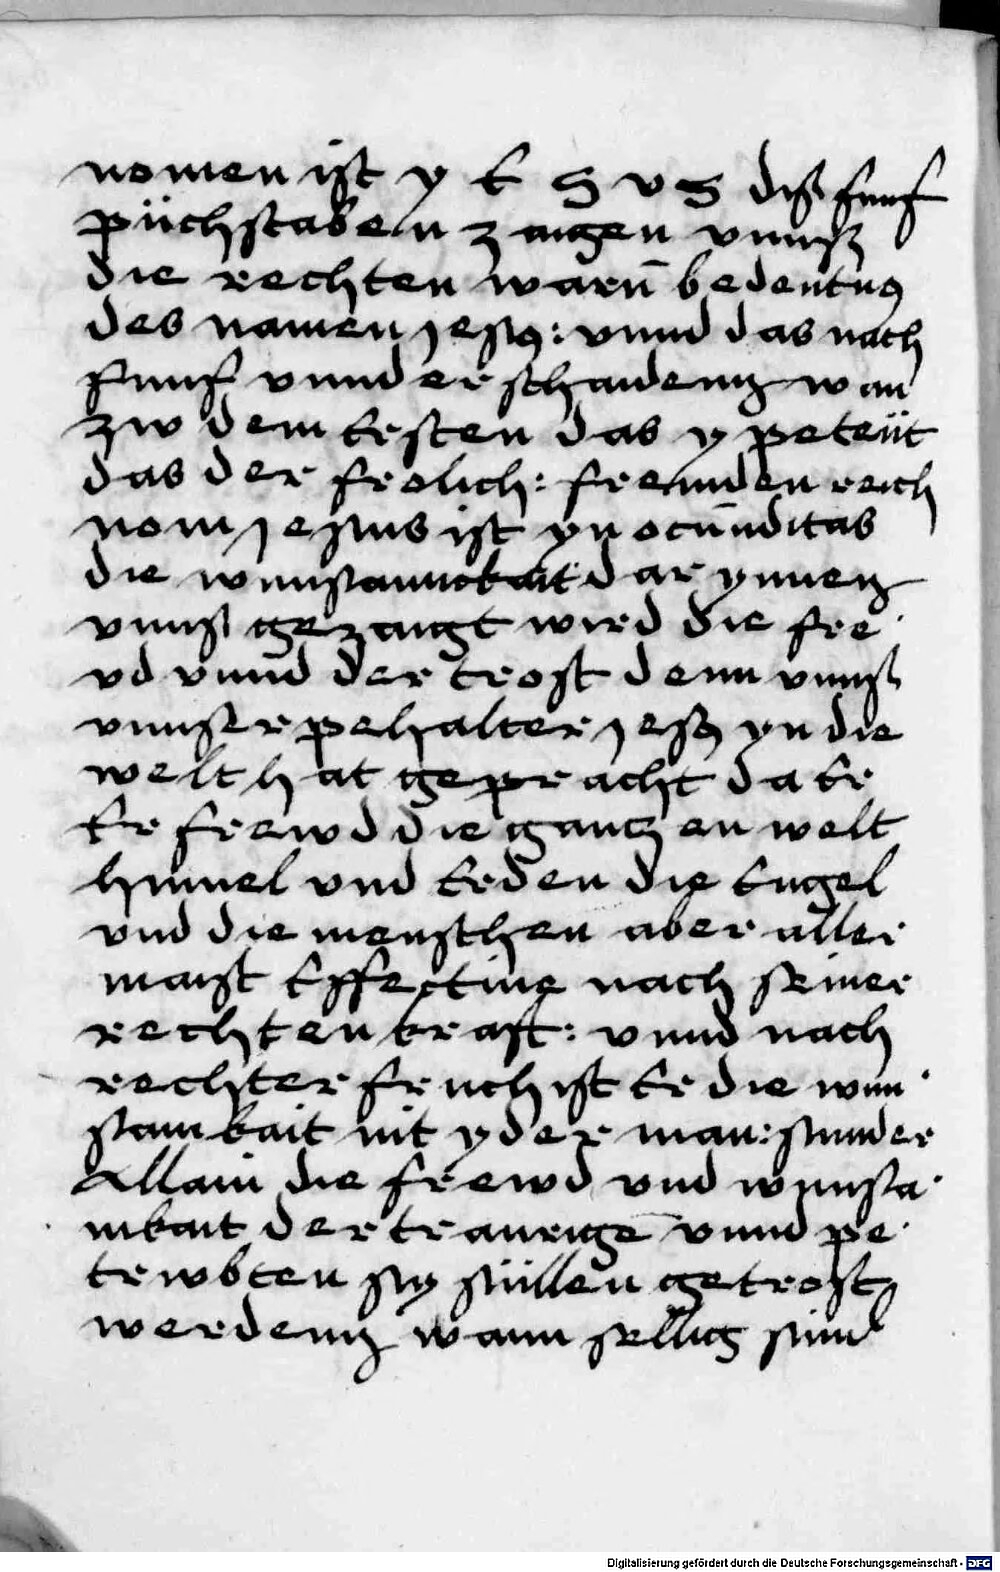 nomen ist y E S v S diß funf
püchstaben zaigen vnnß
die rechten warn̄ bedeutnꝰ
des namen jesꝰ: vnnd das nach
funf vnnderschaidenn wan
zw dem Ersten das y peteüt
das der frolich: freunden reich
nom jesus ist yn ocūnditas
die wunsamckait dar ynnen
vnnß gezaigt wird die fre
vd vnnd der trost denn vnnß
vnnser pehalter jesꝰ yn die
welt hat gepracht da Er
Er frewd die gantzen welt
himel vnd Erden die Engel
vnd die menschen aber aller
maist Effectiue nach seiner
rechten kraft: vnnd nach
rechter fruch ist Er die wun
samkait nit yder man: sunder
Allain die frewd vnd wunsa
mkait der traurigē vnnd pe
trwbten sy süllen getrost
werdenn wann sellig sind